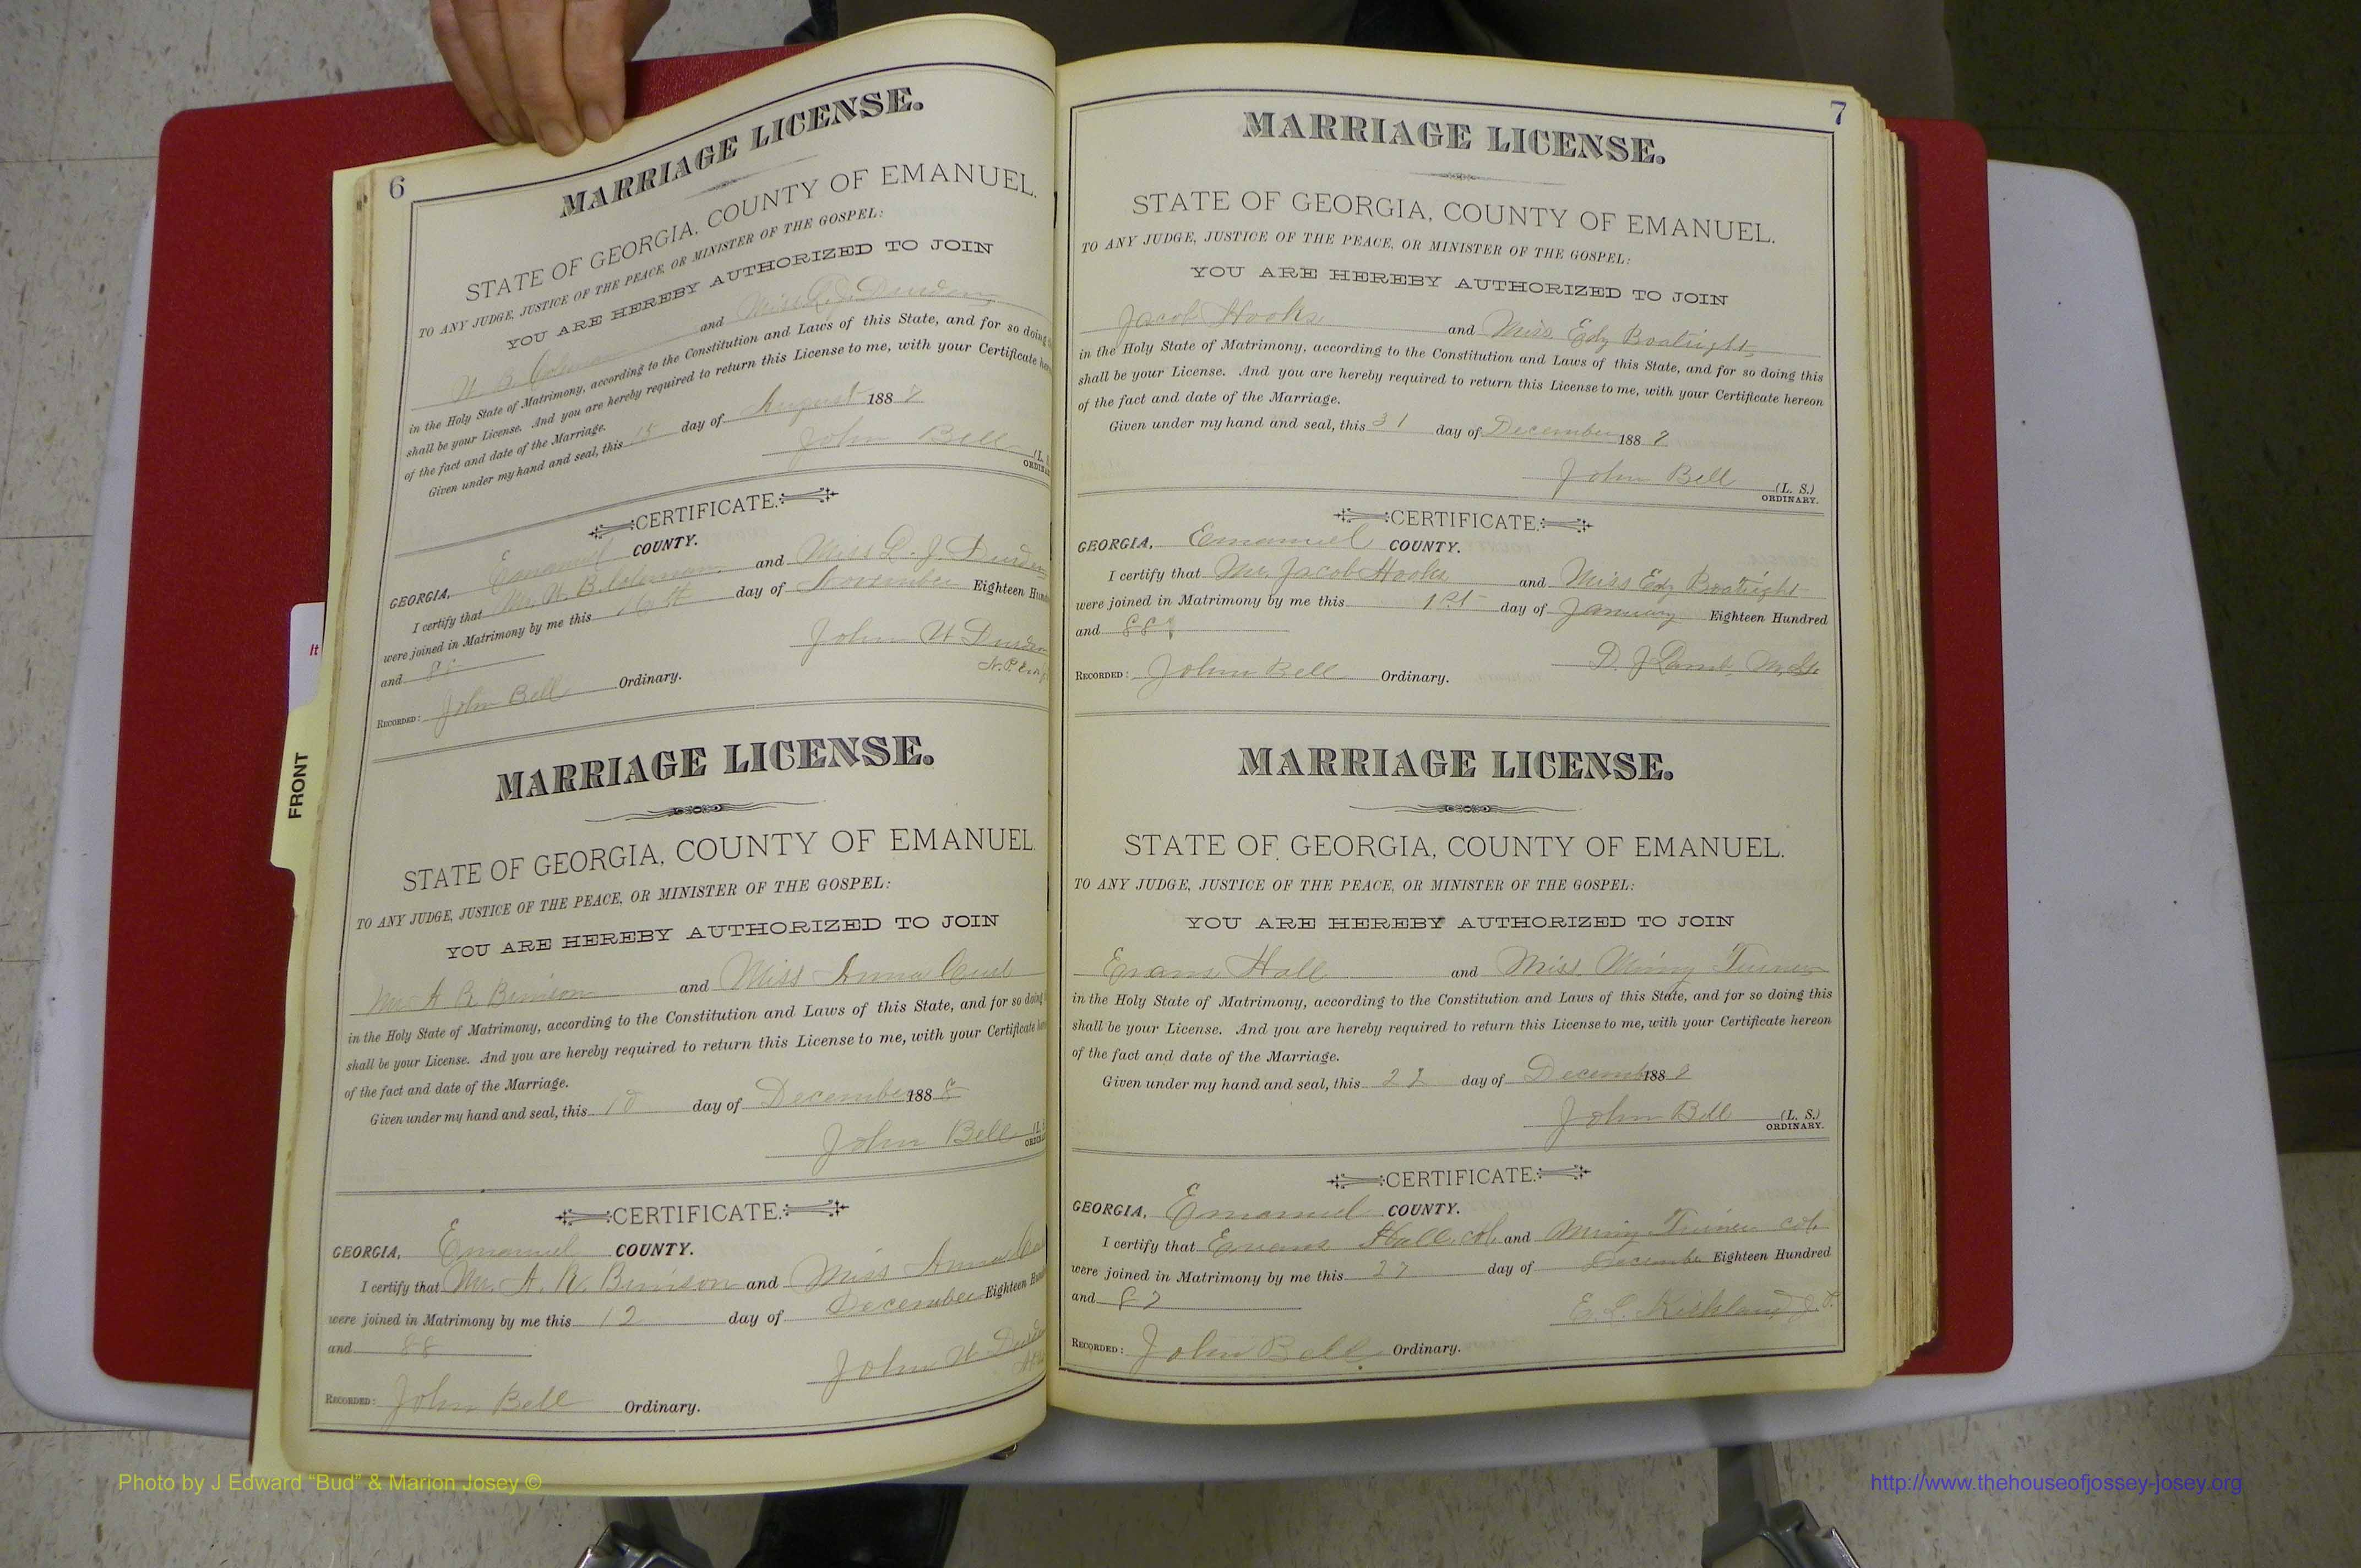 6
MARRIAGE LICENSE.
STATE OF GEORGIA, COUNTY OF EMANUEL.
TO ANY JUDGE, JUSTICE OF THE PEACE, OR MINISTER OF THE GOSPEL:
YOU ARE HEREBY AUTHORIZED TO JOIN
and Miss
in the Holy State of Matrimony, according to the Constitution and Laws of this State, and for so doing
shall be your License. And you are hereby required to return this License to me, with your Certificate
of the fact and date of the Marriage.
Given under my hand and seal, this 15 day of August 188
John Bell
CERTIFICATE.
GEORGIA, Emanuel COUNTY.
I certify that Mr. and Miss L. J. Durden
were joined in Matrimony by me this day of November Eighteen
and
John
Recorded: John Bell Ordinary.
MARRIAGE LICENSE.
STATE OF GEORGIA, COUNTY OF EMANUEL.
TO ANY JUDGE, JUSTICE OF THE PEACE, OR MINISTER OF THE GOSPEL:
YOU ARE HEREBY AUTHORIZED TO JOIN
Mr. A R and Miss Anna
in the Holy State of Matrimony, according to the Constitution and Laws of this State, and for so doing
shall be your License. And you are hereby required to return this License to me, with your Certificate
of the fact and date of the Marriage.
Given under my hand and seal, this 10 day of December 188 8
John Bell
CERTIFICATE.
GEORGIA, Emanuel COUNTY.
I certify that Mr. A. R. and Miss Anna
were joined in Matrimony by me this 12 day of December Eighteen
and 88
John
Recorded: John Bell Ordinary.
7
MARRIAGE LICENSE.
STATE OF GEORGIA, COUNTY OF EMANUEL.
TO ANY JUDGE, JUSTICE OF THE PEACE, OR MINISTER OF THE GOSPEL:
YOU ARE HEREBY AUTHORIZED TO JOIN
Jacob Hooks and Miss Edy Boatright
in the Holy State of Matrimony, according to the Constitution and Laws of this State, and for so doing this
shall be your License. And you are hereby required to return this License to me, with your Certificate hereon
of the fact and date of the Marriage.
Given under my hand and seal, this 31 day of December 188 7
John Bell (L. S.)
ORDINARY.
CERTIFICATE.
GEORGIA, Emanuel COUNTY.
I certify that Mr. Jacob Hooks and Miss Edy Boatright
were joined in Matrimony by me this 1st day of January Eighteen Hundred
and
D. J. Lamb
Recorded: John Bell Ordinary.
MARRIAGE LICENSE.
STATE OF GEORGIA, COUNTY OF EMANUEL.
TO ANY JUDGE, JUSTICE OF THE PEACE, OR MINISTER OF THE GOSPEL:
YOU ARE HEREBY AUTHORIZED TO JOIN
Evans Hall and Miss
in the Holy State of Matrimony, according to the Constitution and Laws of this State, and for so doing this
shall be your License. And you are hereby required to return this License to me, with your Certificate hereon
of the fact and date of the Marriage.
Given under my hand and seal, this 22 day of December 188 7
John Bell (L. S.)
ORDINARY.
CERTIFICATE.
GEORGIA, Emanuel COUNTY.
I certify that Evans Hall col. and col.
were joined in Matrimony by me this 27 day of December Eighteen Hundred
and 87
E. L. Kirkland, J. P.
Recorded: John Bell Ordinary.
FRONT
It
Photo by J Edward “Bud” & Marion Josey ©
http://www.thehouseofjossey-josey.org